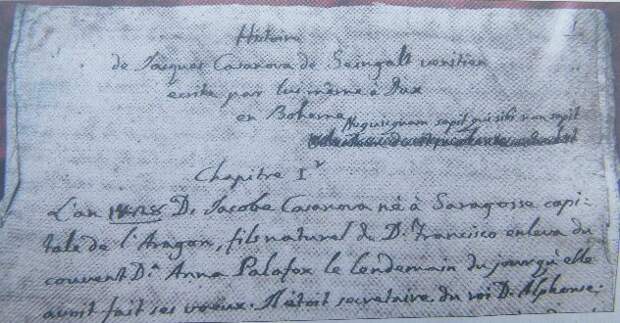 Histoire 1
de Jacques Casanova de Seingalt venitien
ecrite par lui même à Dux
en Boheme
Nequicquam sapit qui sibi non sapit
Chapitre Ir
L'an 1428 D. Jacobe Casanova né à Saragosse capi-
tale de l'Aragon, fils naturel de D. Francisco enleva du
couvent D.a Anna Palafox le lendemain du jour qu'elle
avoit fait ses voeux. Il étoit secretaire du roi D. Alphonse.